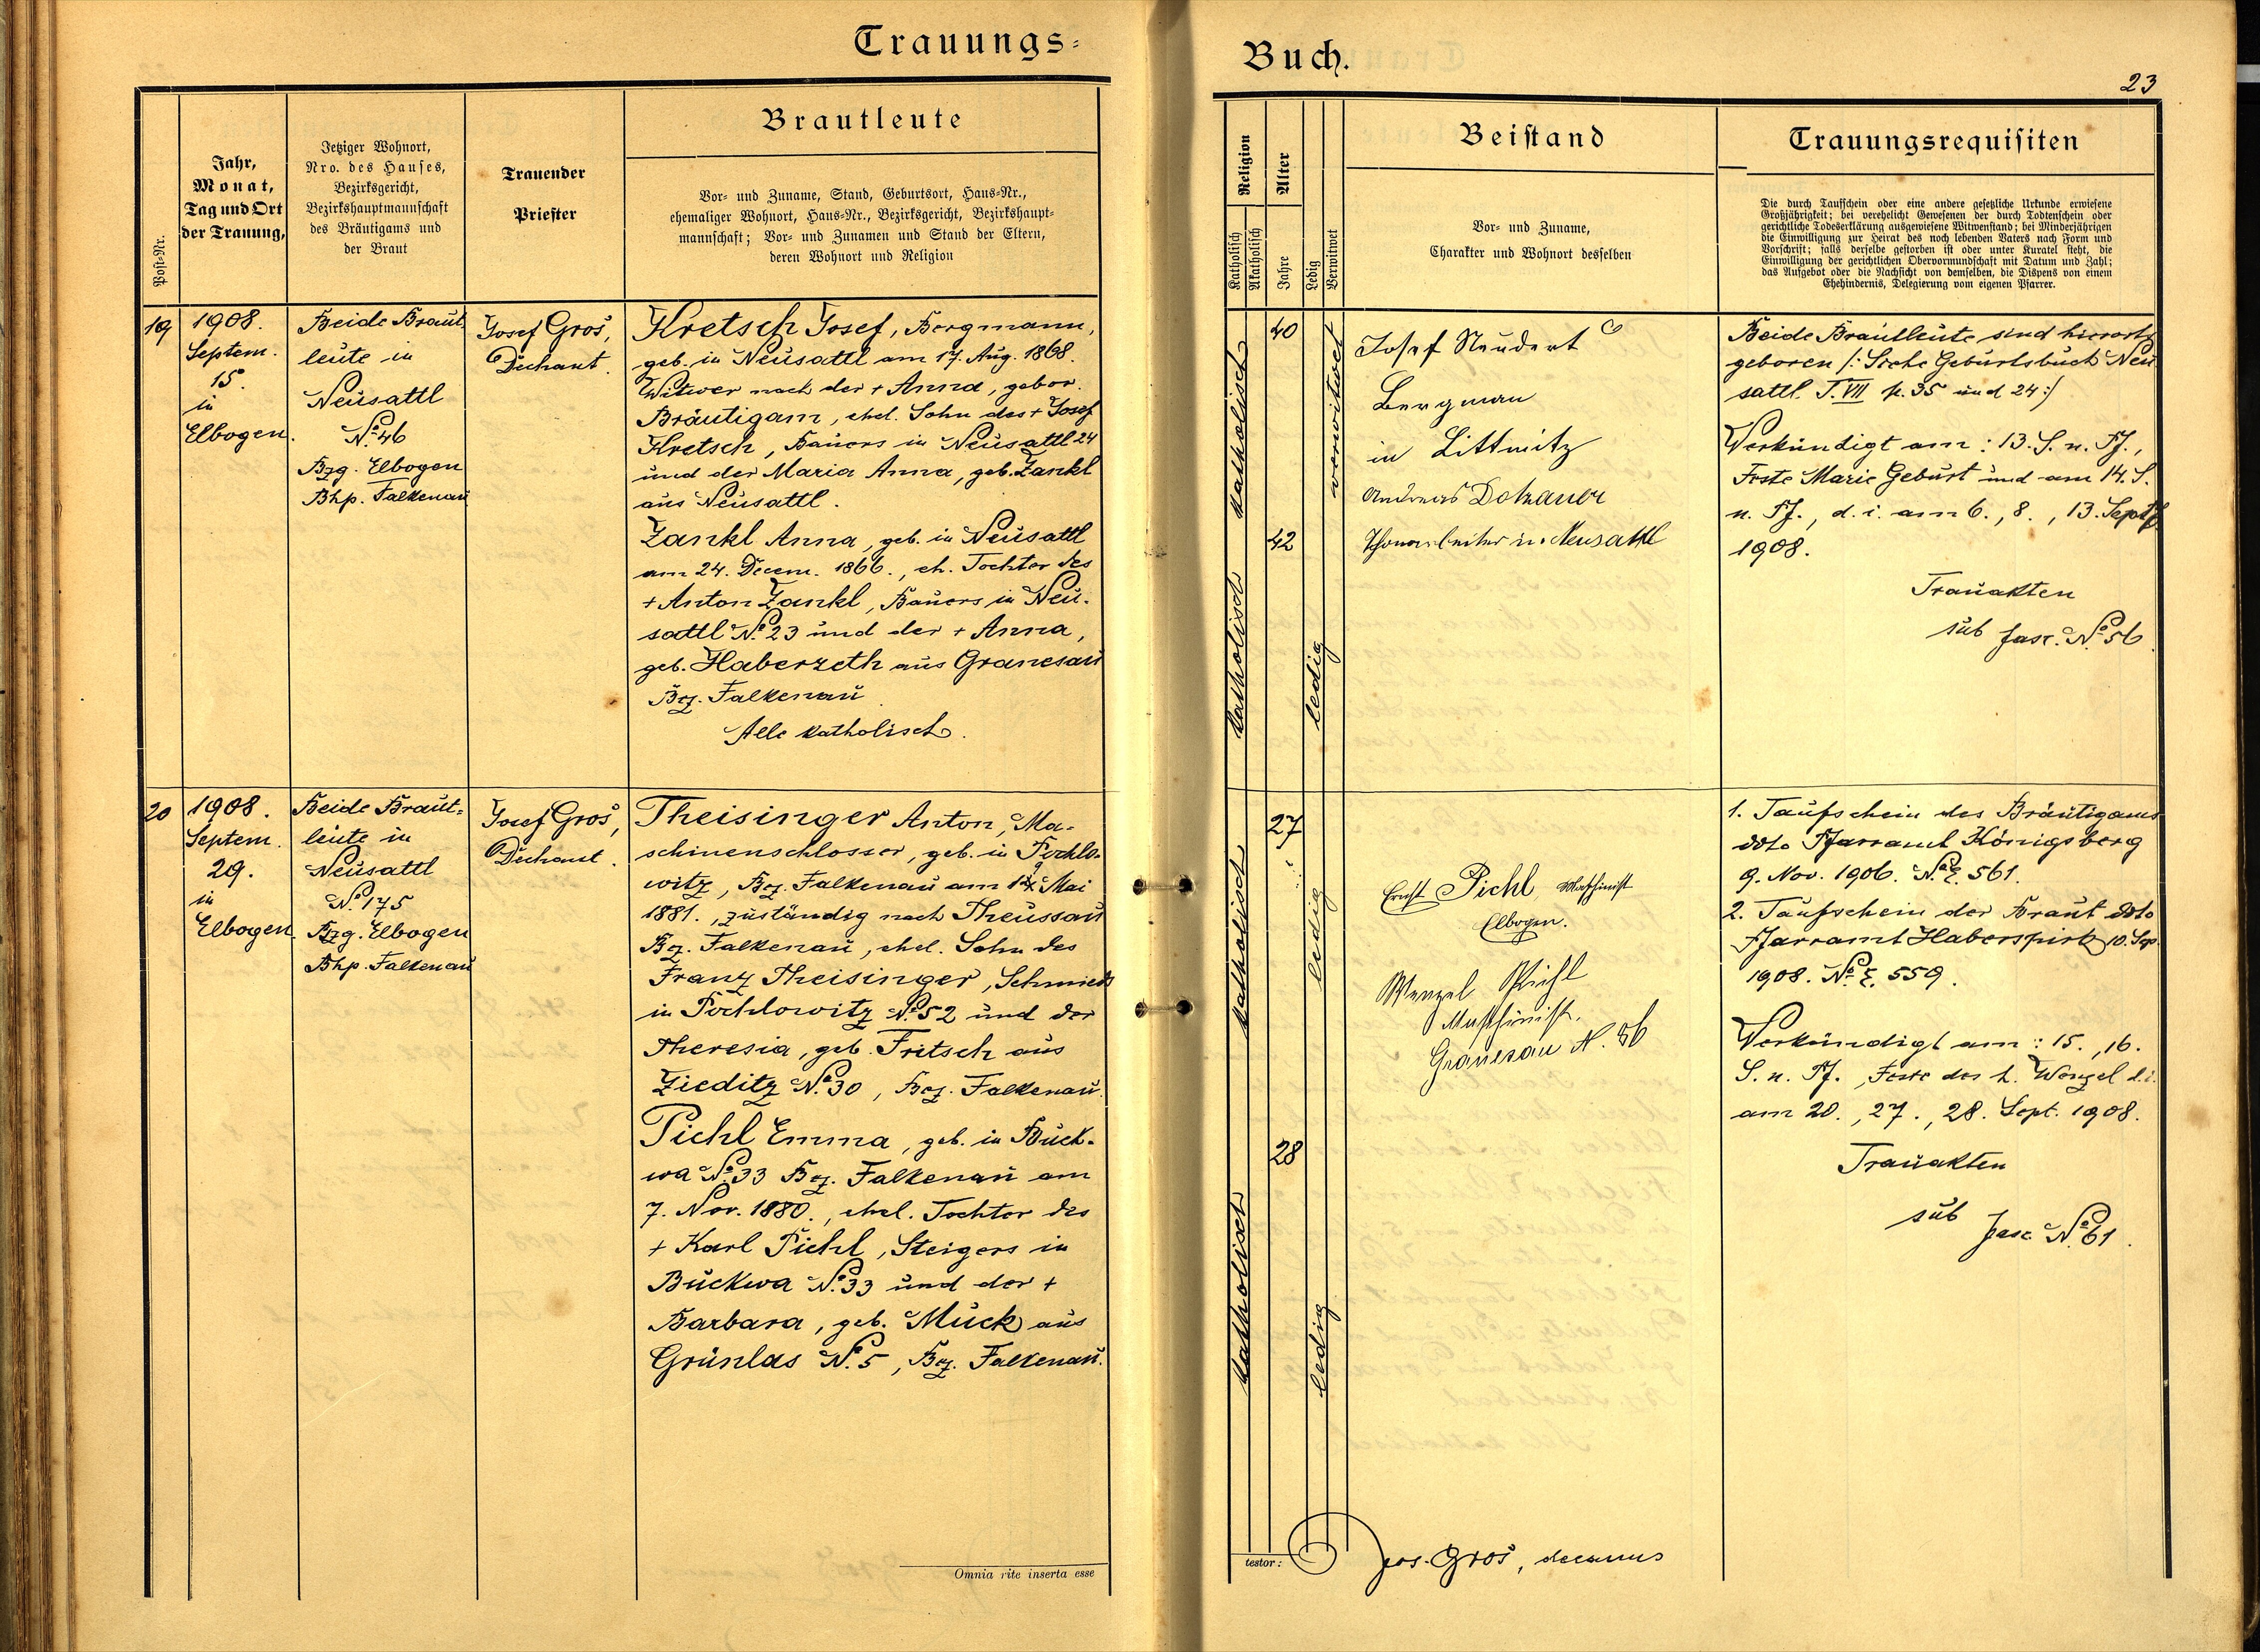 Trauungs-
Post-Nr.
Jahr,
Monat,
Tag und Ort
der Trauung,
Jetziger Wohnort,
Nro. des Hauses,
Bezirksgericht,
Bezirkshauptmannschaft
des Bräutigams und
der Braut
Trauender
Priester
Brautleute
Vor- und Zuname, Stand, Geburtsort, Haus-Nr.,
ehemaliger Wohnort, Haus-Nr., Bezirksgericht, Bezirkshaupt-
mannschaft; Vor- und Zunamen und Stand der Eltern,
deren Wohnort und Religion
19
1908.
Septem.
15.
in
Elbogen.
Beide Braut-
leute in
Neusattl
No. 46
Bzg. Elbogen
Bhp. Falkenau
Josef Groš,
Dechant.
Kretsch Josef, Bergmann,
geb. in Neusattl am 17. Aug. 1868.
Witwer nach der + Anna, gebor.
Bräutigam, ehel. Sohn des + Josef
Kretsch, Bauers in Neusattl 24
und der Maria Anna, geb. Zankl
aus Neusattl.
Zankl Anna, geb. in Neusattl
am 24. Decem. 1866., eh. Tochter des
+ Anton Zankl, Bauers in Neu-
sattl No. 23 und der + Anna,
geb. Haberzeth aus Granesau
Bez. Falkenau
Alle katholisch.
20
1908.
Septem.
29.
in
Elbogen.
Beide Braut-
leute in
Neusattl
No. 175
Bzg. Elbogen
Bhp. Falkenau
Josef Groš,
Dechant.
Theisinger Anton, Ma-
schinenschlosser, geb. in Pochlo-
witz, Bez. Falkenau am Mai
1881., zuständig nach Theussau
Bez. Falkenau, ehel. Sohn des
Franz Theisinger, Schmieds
in Pochlowitz No. 52 und der
Theresia, geb. Fritsch aus
Zieditz No. 30, Bez. Falkenau.
Pichl Emma, geb. in Buck-
wa No. 33 Bez. Falkenau am
7. Nov. 1880., ehel. Tochter des
+ Karl Pichl, Steigers in
Buckwa No. 33 und der +
Barbara, geb. Mück aus
Grünlas No. 5, Bez. Falkenau.
Omnia rite inserta esse
Buch.
23
Religion
Katholisch
Akatholisch
Alter
Jahre
Ledig
Verwitwet
Beistand
Vor- und Zuname,
Charakter und Wohnort desselben
Trauungsrequisiten
Die durch Taufschein oder eine andere gesetzliche Urkunde erwiesene
Großjährigkeit; bei verehelicht Gewesenen der durch Todtenschein oder
gerichtliche Todeserklärung ausgewiesene Witwenstand; bei Minderjährigen
die Einwilligung zur Heirat des noch lebenden Vaters nach Form und
Vorschrift; falls derselbe gestorben ist oder unter Kuratel steht, die
Einwilligung der gerichtlichen Obervormundschaft mit Datum und Zahl;
das Aufgebot oder die Nachsicht von demselben, die Dispens von einem
Ehehindernis, Delegierung vom eigenen Pfarrer.
katholisch
40
verwitwet
katholisch
42
ledig
Josef Neudert
Bergman
in Littmitz
Andreas Dotzauer
Thonarbeiter in Neusattl
Beide Brautleute sind hierorts
geboren /: Siehe Geburtsbuch Neu
sattl. T. VII p. 35 und 24:/
Verkündigt am: 13. S. n. Pf.,
Feste Marie Geburt und am 14. S.
n. Pf., d. i. am 6., 8., 13. Sept.
1908.
Trauakten
sub fasc. No. 56
katholisch
27
ledig
katholisch
28
ledig
Ernst Pichl, Maschinist
Elbogen.
Wenzel Pichl
Maschinist.
Granesau N. 36
1. Taufschein des Bräutigams
ddto Pfarramt Königsberg
9. Nov. 1906. No. E. 561.
2. Taufschein der Braut ddto
Pfarramt Haberspirk 10. Sep.
1908. No. E. 559.
Verkündigt am: 15., 16.
S. n. Pf., Feste des h. Wenzel d. i.
am 20., 27., 28. Sept. 1908.
Trauakten
sub fasc No. 61.
testor:
Jos. Groš, decanus